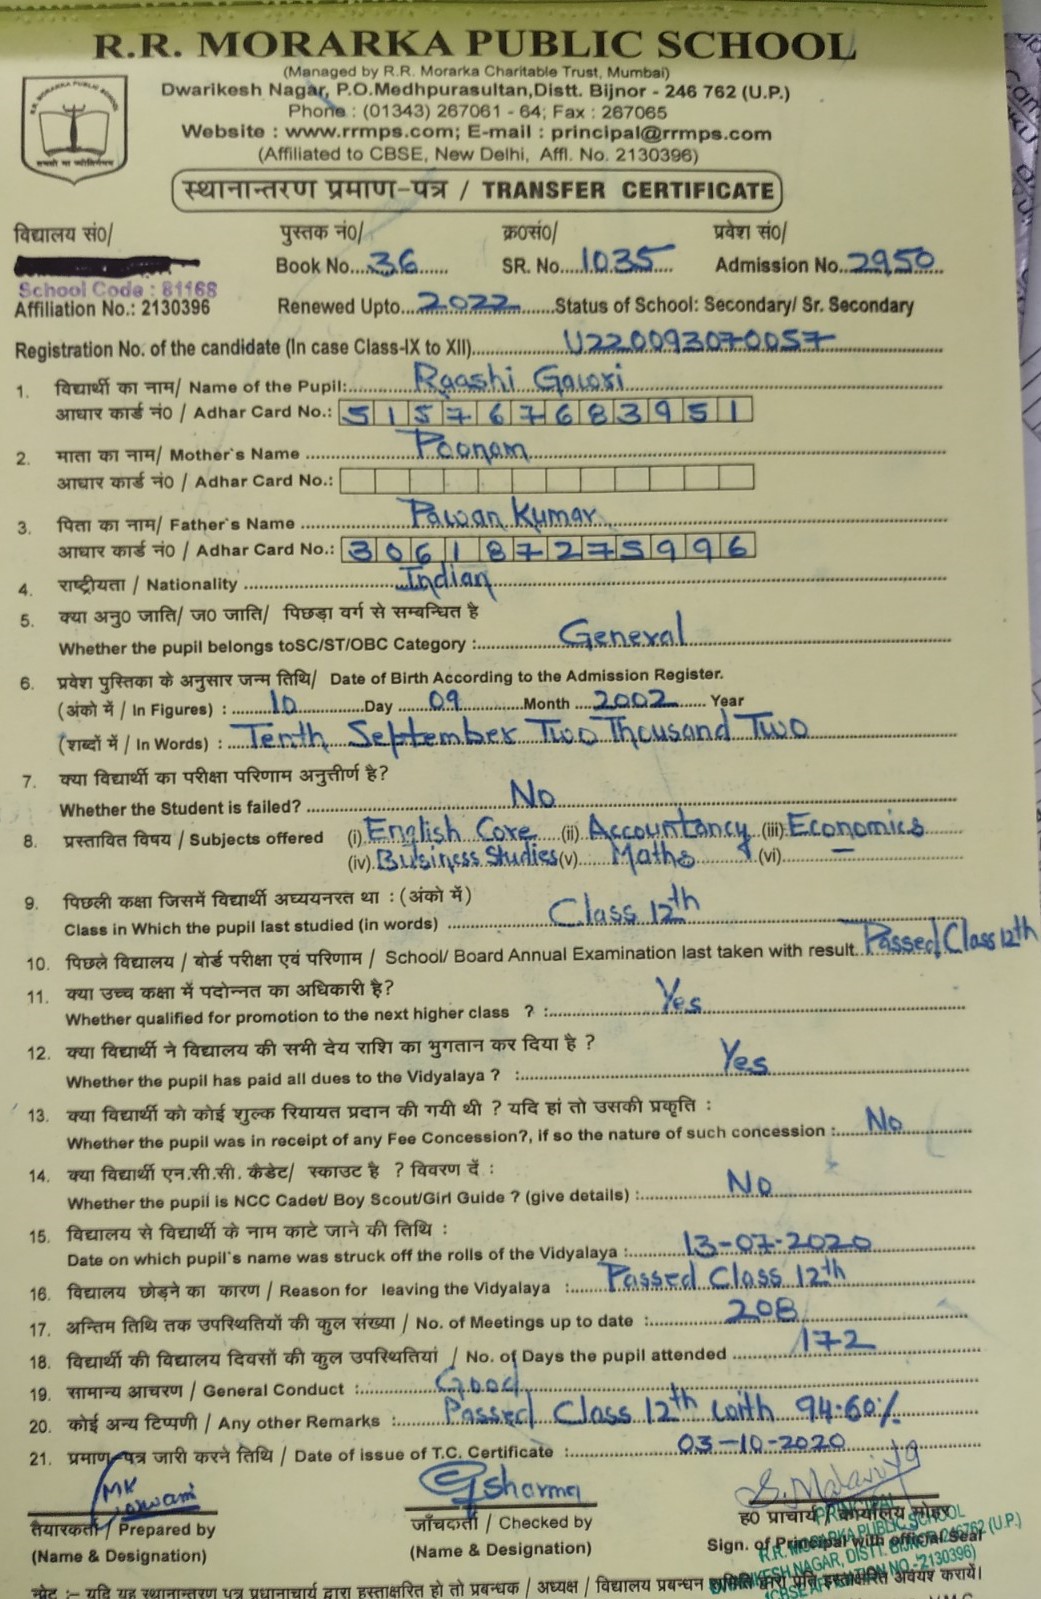 R.R. MORARKA PUBLIC SCHOOL
(Managed by R.R. Morarka Charitable Trust, Mumbai)
Dwarikesh Nagar, P.O.Medhpurasultan,Distt. Bijnor - 246 762 (U.P.)
Phone : (01343) 267061 - 64; Fax : 267065
Website : www.rrmps.com; E-mail : principal@rrmps.com
(Affiliated to CBSE, New Delhi, Affl. No. 2130396)
R.R. MORARKA PUBLIC SCHOOL
स्थानान्तरण प्रमाण-पत्र / TRANSFER CERTIFICATE
विद्यालय सं0/ पुस्तक नं0/ क्र0सं0/ प्रवेश सं0/
Book No...36...... SR. No....1035.... Admission No. 2950
School Code : 81168
Affiliation No.: 2130396 Renewed Upto...2022......Status of School: Secondary/ Sr. Secondary
Registration No. of the candidate (In case Class-IX to XII)......U220093070057
1. विद्यार्थी का नाम/ Name of the Pupil:......Raashi Gawri
आधार कार्ड नं0 / Adhar Card No.: 515767683951
2. माता का नाम/ Mother's Name ......Poonam
आधार कार्ड नं0 / Adhar Card No.:
3. पिता का नाम/ Father's Name ......Pawan Kumar
आधार कार्ड नं0 / Adhar Card No.: 306187275996
4. राष्ट्रीयता / Nationality ......Indian
5. क्या अनु0 जाति/ ज0 जाति/ पिछड़ा वर्ग से सम्बन्धित है
Whether the pupil belongs toSC/ST/OBC Category :......General
6. प्रवेश पुस्तिका के अनुसार जन्म तिथि/ Date of Birth According to the Admission Register.
(अंको में / In Figures) : ......10......Day ...09......Month ...2002...... Year
(शब्दों में / In Words) : ...Tenth September Two Thousand Two
7. क्या विद्यार्थी का परीक्षा परिणाम अनुत्तीर्ण है?
Whether the Student is failed? ......No
8. प्रस्तावित विषय / Subjects offered (i) English Core (ii) Accountancy (iii) Economics
(iv) Business Studies (v) Maths (vi) —
9. पिछली कक्षा जिसमें विद्यार्थी अघ्ययनरत था : (अंको में)
Class in Which the pupil last studied (in words) ......Class 12th
10. पिछले विद्यालय / बोर्ड परीक्षा एवं परिणाम / School/ Board Annual Examination last taken with result. Passed Class 12th
11. क्या उच्च कक्षा में पदोन्नत का अधिकारी है?
Whether qualified for promotion to the next higher class ? :......Yes
12. क्या विद्यार्थी ने विद्यालय की सभी देय राशि का भुगतान कर दिया है ?
Whether the pupil has paid all dues to the Vidyalaya ? :......Yes
13. क्या विद्यार्थी को कोई शुल्क रियायत प्रदान की गयी थी ? यदि हां तो उसकी प्रकृति :
Whether the pupil was in receipt of any Fee Concession?, if so the nature of such concession :......No
14. क्या विद्यार्थी एन.सी.सी. कैडेट/ स्काउट है ? विवरण दें :
Whether the pupil is NCC Cadet/ Boy Scout/Girl Guide ? (give details) :......No
15. विद्यालय से विद्यार्थी के नाम काटे जाने की तिथि :
Date on which pupil's name was struck off the rolls of the Vidyalaya :......13-07-2020
16. विद्यालय छोड़ने का कारण / Reason for leaving the Vidyalaya :......Passed Class 12th
17. अन्तिम तिथि तक उपस्थितियों की कुल संख्या / No. of Meetings up to date :......208
18. विद्यार्थी की विद्यालय दिवसों की कुल उपस्थितियां / No. of Days the pupil attended ......172
19. सामान्य आचरण / General Conduct :......Good
20. कोई अन्य टिप्पणी / Any other Remarks :......Passed Class 12th with 94.60%
21. प्रमाण-पत्र जारी करने तिथि / Date of issue of T.C. Certificate :......03-10-2020
MK Goswami Gsharma S. Malaviya
तैयारकर्ता / Prepared by जाँचदार्ता / Checked by ह0 प्राचार्य / कार्यालय मोहर
(Name & Designation) (Name & Designation) Sign. of Principal with official Seal
PRINCIPAL
R.R. MORARKA PUBLIC SCHOOL
DWARIKESH NAGAR, DISTT. BIJNOR-246762 (U.P.)
(CBSE AFFILIATION NO.-2130396)
नोट :- यदि यह स्थानान्तरण पत्र प्रधानाचार्य द्वारा हस्ताक्षरित हो तो प्रबन्धक / अध्यक्ष / विद्यालय प्रबन्धन समिति द्वारा प्रति हस्ताक्षरित अवश्य करायें।